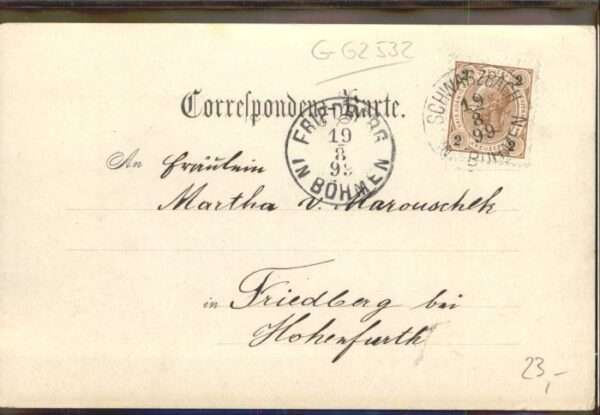 G G2532
Correspondenz-Karte.
2 2
SCHWARZBACH
19
8
99
IN BÖHMEN
2
FRIEDBERG
19
8
99
IN BÖHMEN
An Fräulein
Martha v. Marouschek
in Friedberg bei
Hohenfurth
23,-